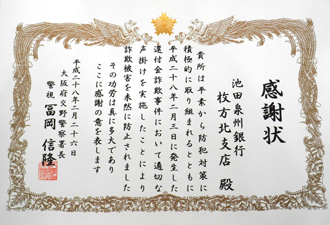 感謝状
池田泉州銀行
枚方北支店 殿
貴所は平素から防犯対策に
積極的に取り組まれるとともに
平成二十八年二月三日に発生した
還付金詐欺事件において適切な
声掛けを実施したことにより
詐欺被害を未然に防止されました
その功労は真に多大であり
ここに感謝の意を表します
平成二十八年二月二十六日
大阪府交野警察署長
警視 冨岡信隆